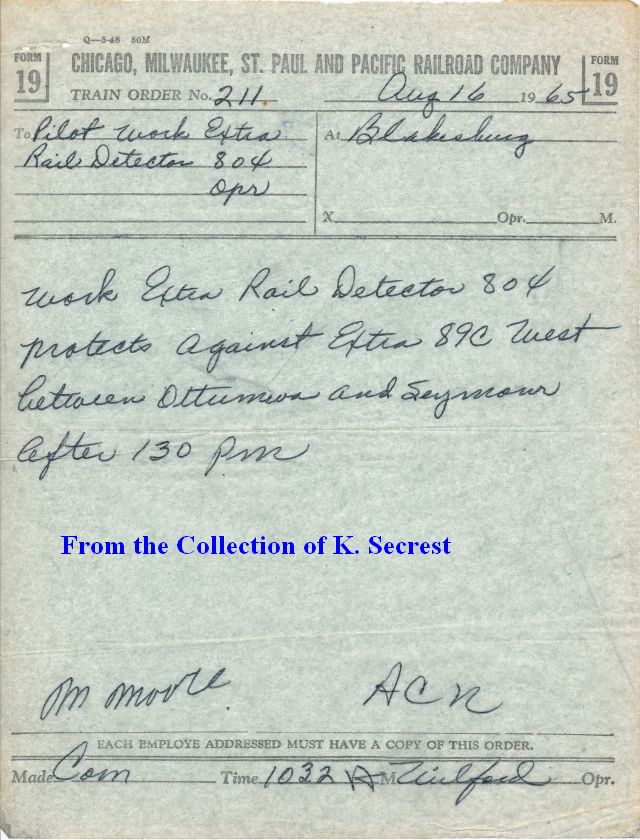 Q—5-48 50M
FORM 19 CHICAGO, MILWAUKEE, ST. PAUL AND PACIFIC RAILROAD COMPANY FORM 19
TRAIN ORDER No. 211 Aug 16 1965
To Pilot Work Extra At Blakesburg
Rail Detector 804
Opr
X Opr. M.
Work Extra Rail Detector 804
protects against Extra 89C West
between Ottumwa and Seymour
After 130 pm
From the Collection of K. Secrest
M Moore ACN
EACH EMPLOYE ADDRESSED MUST HAVE A COPY OF THIS ORDER.
Made Com Time 1032 A M Milford Opr.